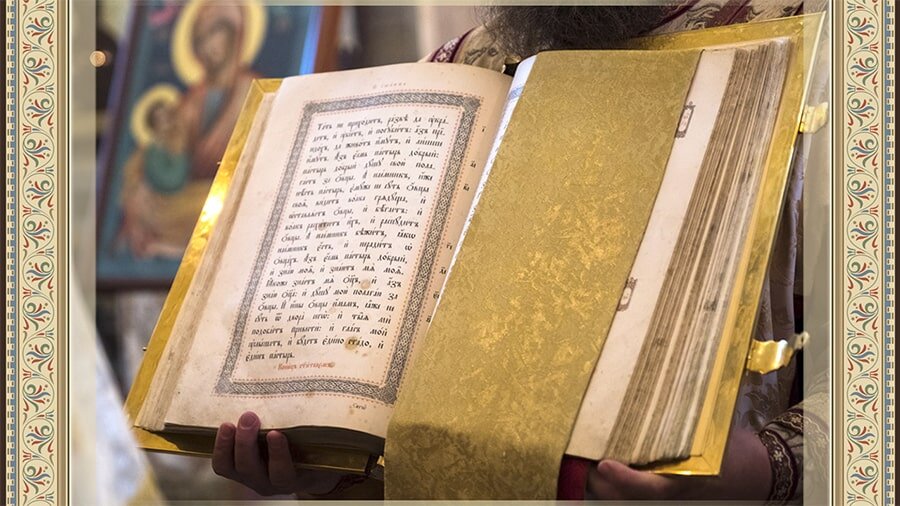 Тать не приходитъ, развѣ да ᲂу҆кра-
детъ, и҆ ᲂу҆бїетъ, и҆ погꙋбитъ: а҆зъ прї-
идохъ, да животъ и҆мꙋтъ, и҆ лишше
и҆мꙋтъ. А҆зъ є҆смь пастырь добрый:
пастырь добрый дꙋшꙋ свою пола-
гаетъ за ѻ҆вцы. А҆ наемникъ, и҆же
нѣсть пастырь, є҆мꙋже не сꙋть ѻ҆вцы
своѧ, видитъ волка грѧдꙋща, и҆
ѡ҆ставлѧетъ ѻ҆вцы, и҆ бѣгаетъ: и҆
волкъ расхититъ и҆хъ, и҆ распꙋдитъ
ѻ҆вцы. А҆ наемникъ бѣжитъ, ꙗ҆кѡ
наемникъ є҆сть, и҆ нерадитъ ѡ҆
ѻ҆вцахъ. А҆зъ є҆смь пастырь добрый,
и҆ знаю моѧ, и҆ знаютъ мѧ моѧ.
Ꙗ҆коже знаетъ мѧ Ѻ҆ц҃ъ, и҆ а҆зъ
знаю Ѻ҆ц҃а: и҆ дꙋшꙋ мою полагаю за
ѻ҆вцы. И҆ и҆ны ѻ҆вцы и҆мамъ, ꙗ҆же не
сꙋть ѿ двора сегѡ: и҆ тыѧ ми
подобаетъ привести: и҆ гласъ мой
ᲂу҆слышатъ, и҆ бꙋдетъ є҆дино стадо, и҆
є҆динъ пастырь.
Конецъ ст҃ителємъ.